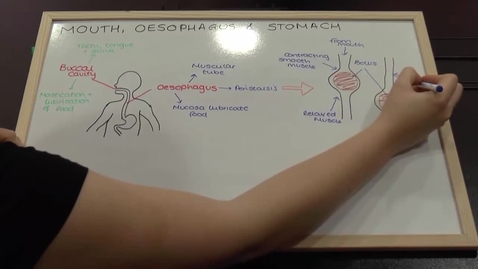 MOUTH, OESOPHAGUS & STOMACH
Teeth, tongue +
Buccal
cavity
Mastication +
lubrication
of food
Muscular
tube
Oesophagus → Peristalsis
Mucosa lubricate
food
From
mouth
Contracting
smooth
muscle
Bolus
Relaxed
Muscle